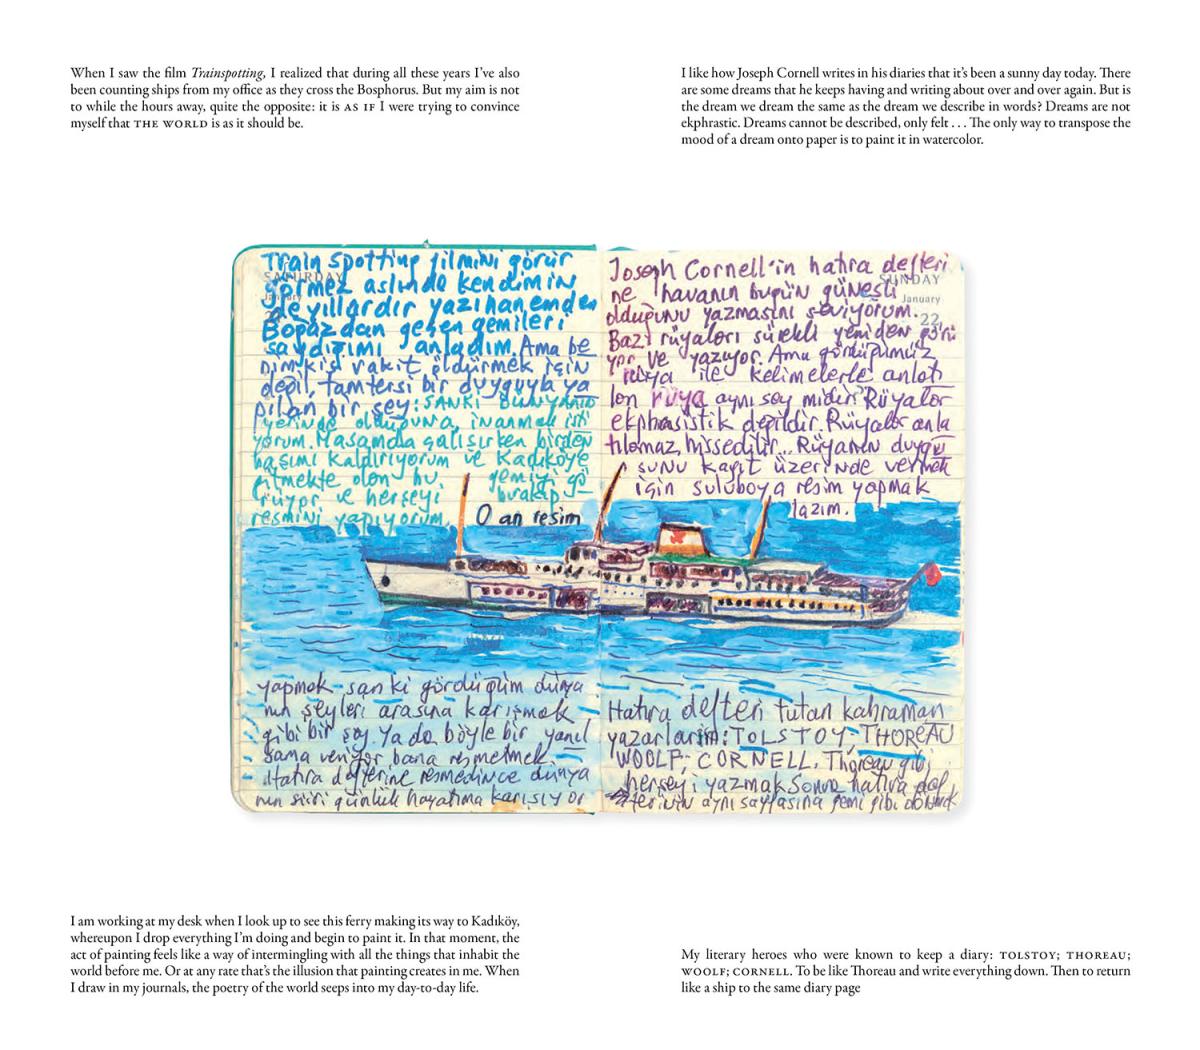 When I saw the film Trainspotting, I realized that during all these years I've also
been counting ships from my office as they cross the Bosphorus. But my aim is not
to while the hours away, quite the opposite: it is AS IF I were trying to convince
myself that THE WORLD is as it should be.
I like how Joseph Cornell writes in his diaries that it's been a sunny day today. There
are some dreams that he keeps having and writing about over and over again. But is
the dream we dream the same as the dream we describe in words? Dreams are not
ekphrastic. Dreams cannot be described, only felt . . . The only way to transpose the
mood of a dream onto paper is to paint it in watercolor.
SATURDAY
January
Train spotting filmini görür
görmez aslında kendimin
de yıllardır yazıhanemden
Boğazdan geçen gemileri
saydığımı anladım. Ama be
nimkisi vakit öldürmek için
değil, tam tersi bir duyguyla ya
pılan bir şey: SANKİ DÜNYANIN
yerinde olduğuna, inanmak isti
yorum. Masamda çalışırken birden
başımı kaldırıyorum ve Kadıköye
gitmekte olan bu gemiyi gö
rüyor ve herşeyi bırakıp
resmini yapıyorum. O an resim
yapmak sanki gördüğüm dünya
nın şeyleri arasına karışmak
gibi bir şey. Ya da böyle bir yanıl
sama veriyor bana resmetmek.
Hatıra defterine resmedince dünya
nın şiiri günlük hayatıma karışıyor
SUNDAY
January
22
Joseph Cornell'in hatıra defteri
ne havanın bugün güneşli
olduğunu yazmasını seviyorum.
Bazı rüyaları sürekli yeniden görü
yor ve yazıyor. Ama gördüğümüz
rüya ile kelimelerle anlatı
lan rüya aynı şey midir? Rüyalar
ekphrasistik değildir. Rüyalar anla
tılamaz, hissedilir... Rüyanın duygu
sunu kayıt üzerinde vermek
için suluboya resim yapmak
lazım.
Hatıra defteri tutan kahraman
yazarlarım: TOLSTOY; THOREAU
WOOLF; CORNELL. Thoreau gibi
herşeyi yazmak Sonra hatıra def
terinin aynı sayfasına gemi gibi dönmek
I am working at my desk when I look up to see this ferry making its way to Kadıköy,
whereupon I drop everything I'm doing and begin to paint it. In that moment, the
act of painting feels like a way of intermingling with all the things that inhabit the
world before me. Or at any rate that's the illusion that painting creates in me. When
I draw in my journals, the poetry of the world seeps into my day-to-day life.
My literary heroes who were known to keep a diary: TOLSTOY; THOREAU;
WOOLF; CORNELL. To be like Thoreau and write everything down. Then to return
like a ship to the same diary page